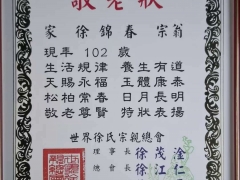 敬老狀
家徐錦春 宗翁
現年102歲
生活規律 養生有道
天賜永福 玉體康泰
松柏常春 日月長明
敬老尊賢 特狀表揚
世界徐氏宗親總會
理事長 徐茂淦
總會長 徐江仁